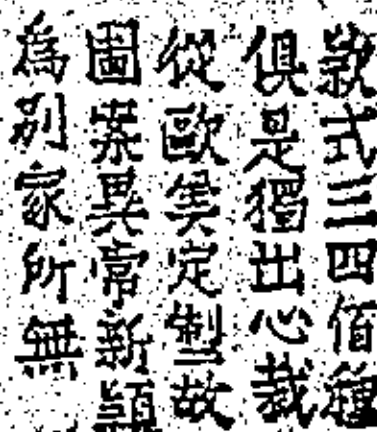 欵式三四佰種
俱是獨出心裁
從歐美定製故
圖案異常新穎
為別家所無